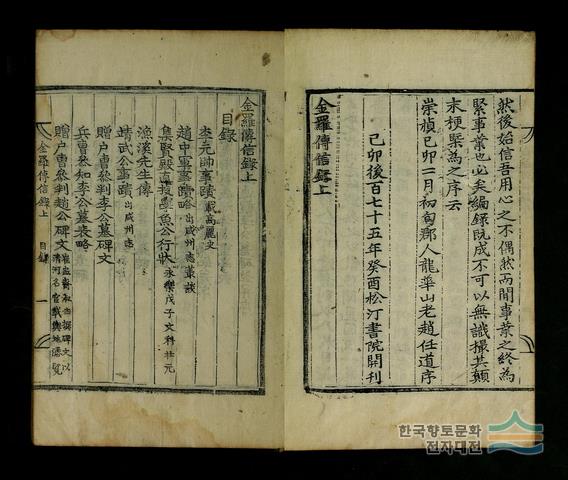 然後始信吾用心之不偶然而閒事業之終爲
緊事業也必矣編錄旣成不可以無識撮其顚
末梗槩爲之序云
崇禎己卯二月初旬郡人龍華山老趙任道序
己卯後百七十五年癸酉松汀書院開刊
金羅傳信錄上
金羅傳信錄上
目錄
李元帥事蹟 載高麗史
趙中軍事蹟略 出咸州志叢談
集賢殿直提學魚公行狀 永樂戊子文科壯元
漁溪先生傳
靖武公事蹟 出咸州志
贈戶曹參判李公墓碑文
兵曹參知李公墓表略
贈戶曹參判趙公碑文
清河名官載輿地勝覽
金羅傳信錄上 目錄 一
한국향토문화
전자대전